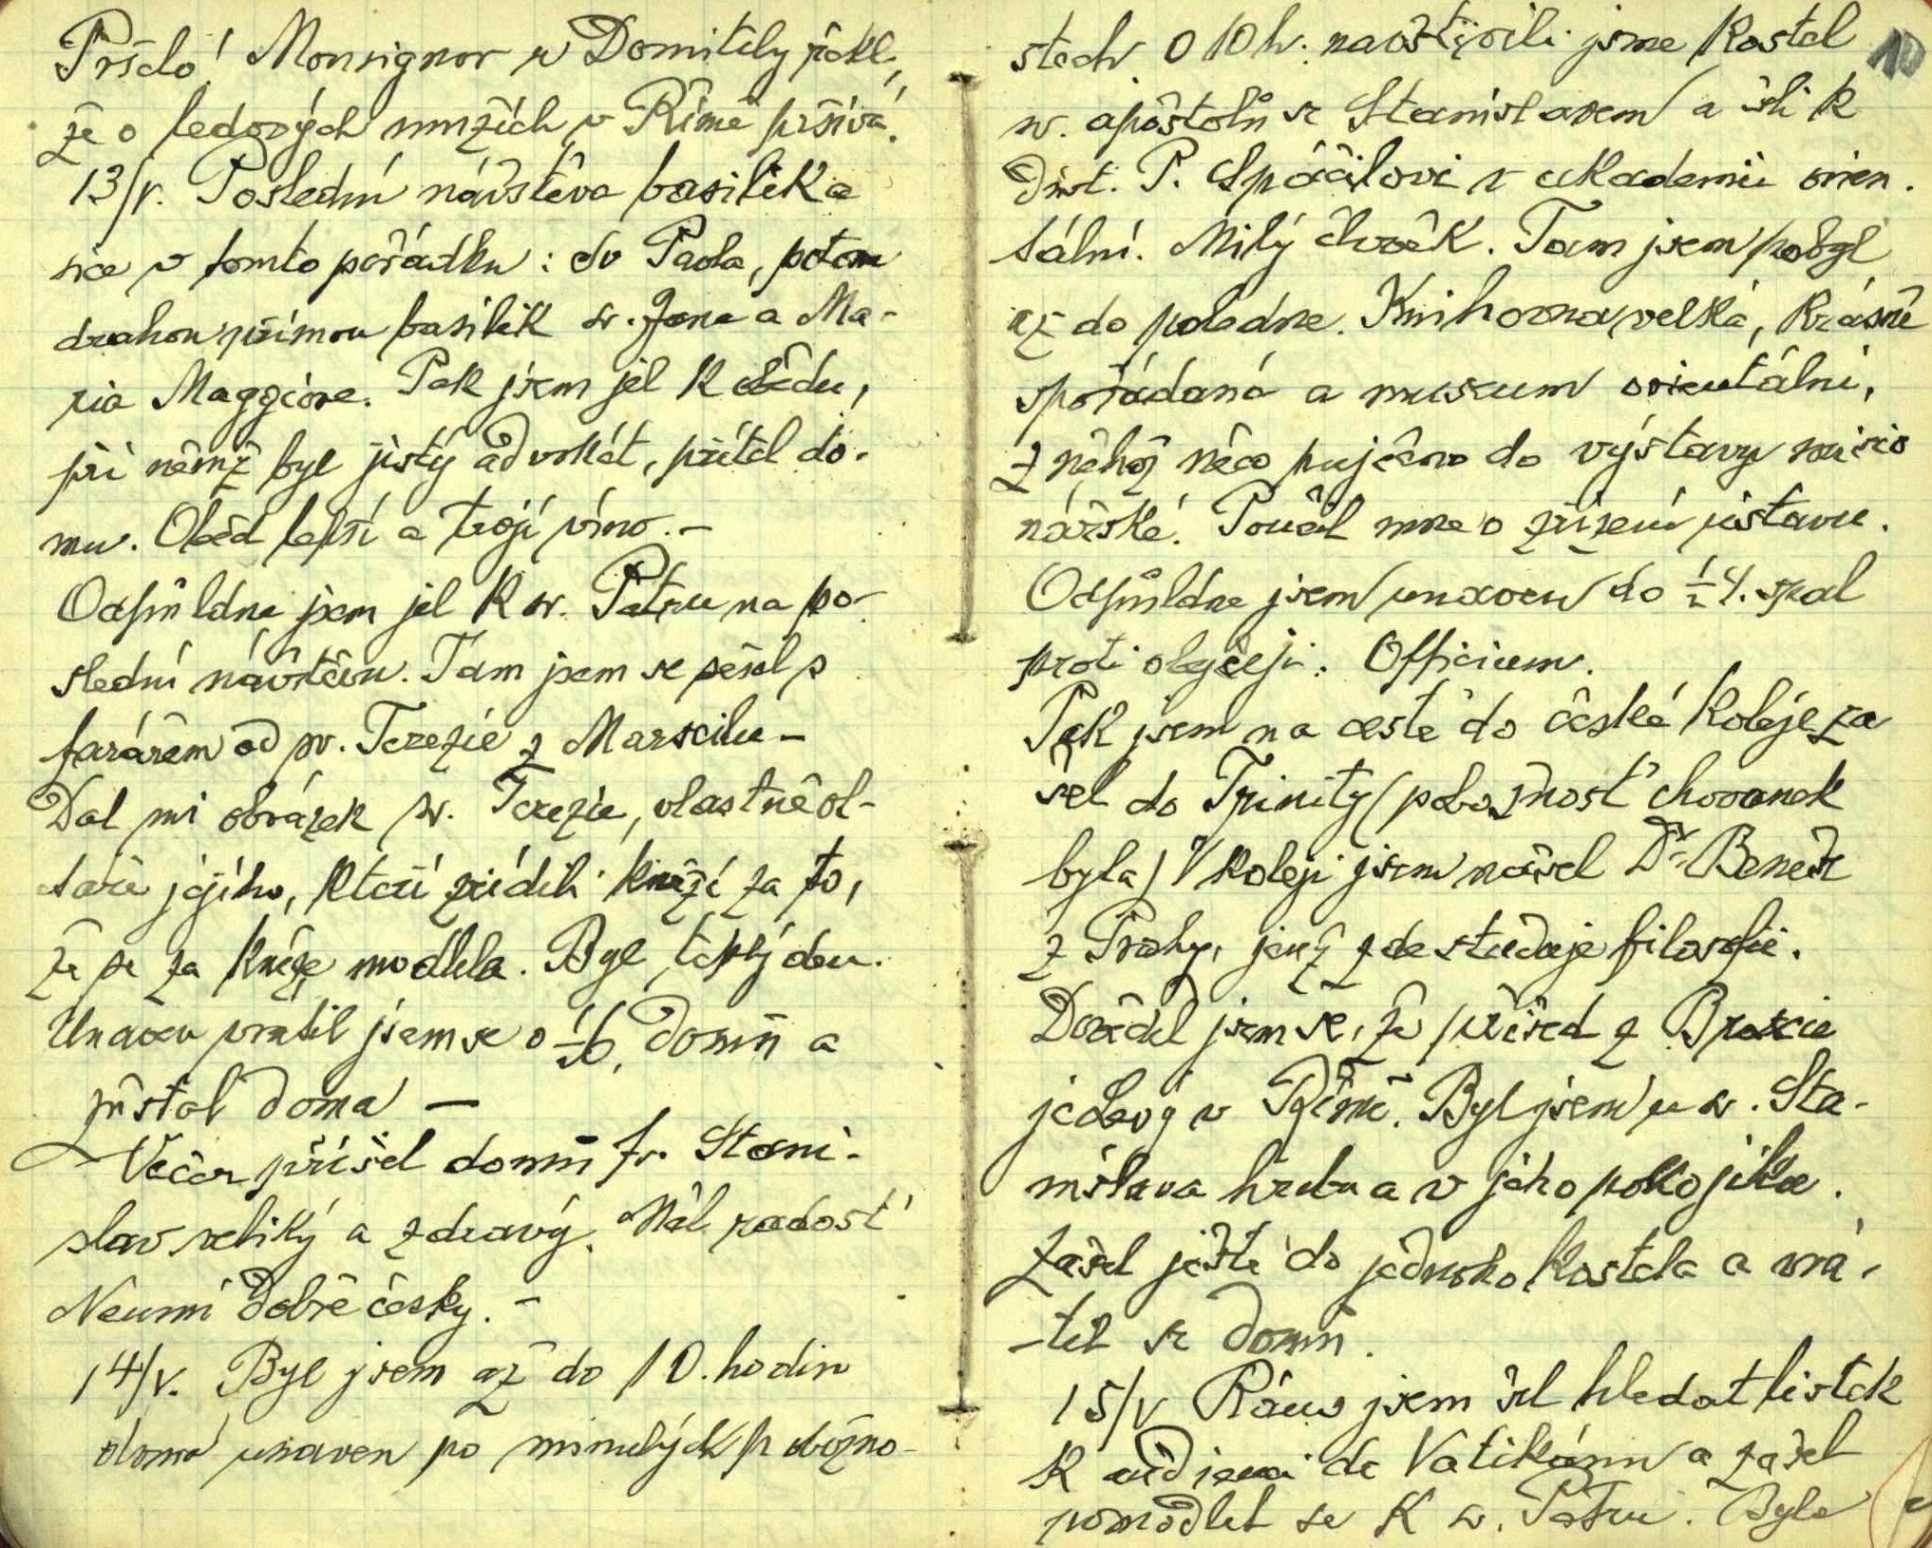 Pršelo! Monsignor u Domitily řekl,
že o ledových mužích v Římě pršívá.
13/V. Poslední návštěva basilik a
sice v tomto pořádku: do Paola, potom
drahou přímou basilik sv. Jana a Ma-
ria Maggiore. Pak jsem jel k obědu,
při němž byl jistý advokát, přítel do-
mu. Oběd lepší a trojí víno. –
Odpůldne jsem jel k sv. Petru na po-
slední návštěvu. Tam jsem se sešel s
farářem od sv. Terezie z Marseilu –
Dal mi obrázek sv. Terezie, vlastně ol-
táře jejího, kteří zřídili kněží za to,
že se za kněze modlila. Byl teplý den.
Unaven vrátil jsem se o ½6. domů a
zůstal doma –
Večer přišel domů fr. Stani-
slav veliký a zdravý. Měl radost
Neumí dobře česky. –
14/V. Byl jsem až do 10. hodin
doma unaven po minulých pobožno-
10
stech O 10 h. navštívili jsme kostel
sv. apoštolů se Stanislavem a šli k
dvot. P. Spáčilovi v akademii orien-
tální. Milý člověk. Tam jsem pobyl
až do poledne. Knihovna velká, krásně
spořádaná a museum orientální,
z něhož něco pujčeno do výstavy misio
nářské. Poučil mne o zřízení ústavu.
Odpůldne jsem unaven do ½4. spal
proti obyčeji. Officium.
Pak jsem na cestě do české koleje za
šel do Trinity (pobožnost chovanek
byla) V koleji jsem našel Dr. Beneše
z Prahy, jenž zde studuje filosofii.
Dověděl jsem se, že přišed z Brescie
je Levý v Římě. Byl jsem u sv. Sta-
nislava hrobu a v jeho pokojíku.
Zašel ještě do jednoho kostela a vrá-
-til se domů.
15/V Ráno jsem šel hledat lístek
k audienci do Vatikánu a zašel
pomodlit se k sv. Petru. Bylo